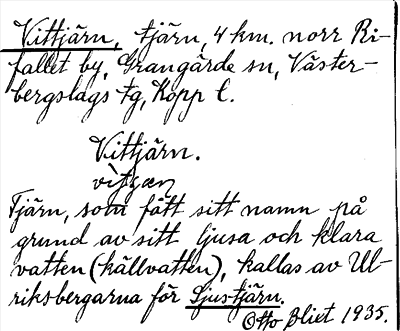 Vittjärn, tjärn, 4 km. norr Ri-
fallet by, Grangärde sn, Väster-
bergslags tg, Kopp l.
Vittjärn.
Tjärn, som fått sitt namn på
grund av sitt ljusa och klara
vatten (källvatten), kallas av Ul-
riksbergarna för Ljustjärn.
Otto Bliet 1935.